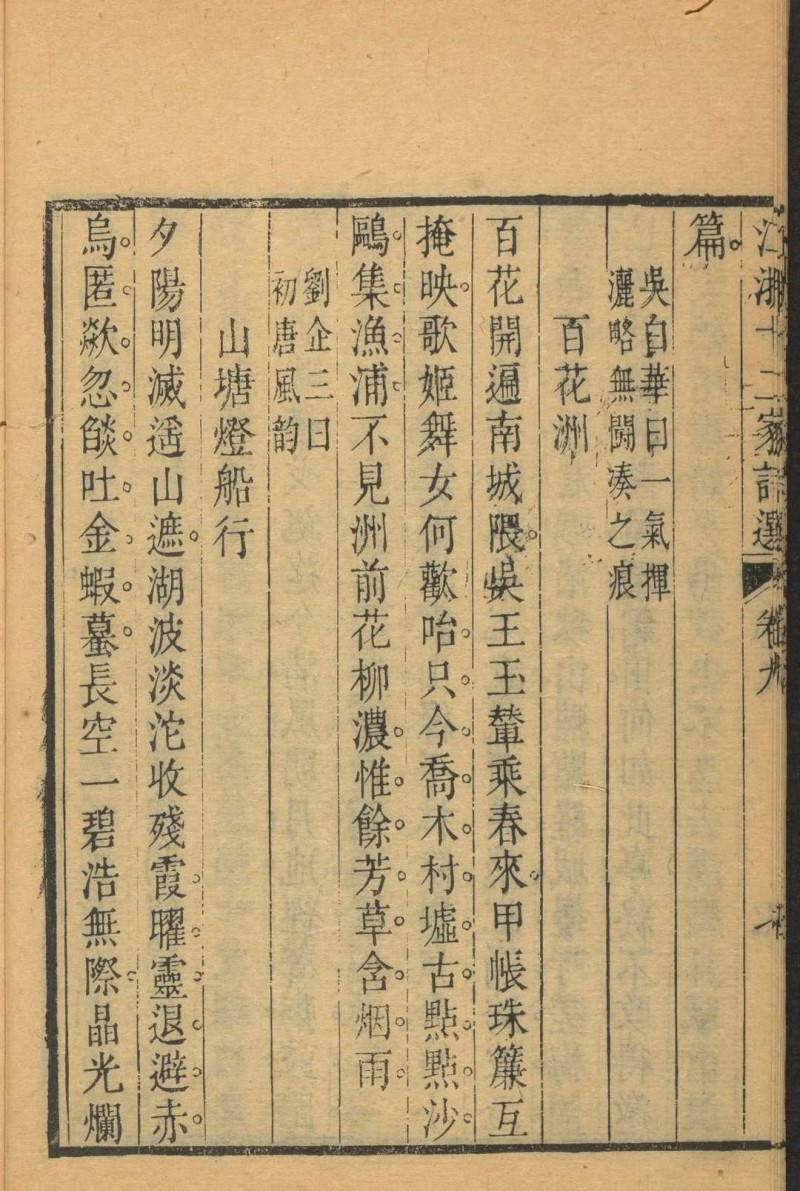 江湖十二家詩選 卷九
篇
吳白華曰一氣揮
灑略無鬬湊之痕
百花洲
百花開遍南城隈吳王玉輦乘春來甲帳珠簾互
掩映歌姬舞女何歡咍只今喬木村墟古點點沙
鷗集漁浦不見洲前花柳濃惟餘芳草含烟雨
劉企三曰
初唐風韵
山塘燈船行
夕陽明滅遥山遮湖波淡沱收殘霞曜靈退避赤
烏匿歘忽燄吐金蝦蟇長空一碧浩無際晶光爛